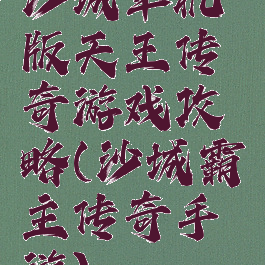 沙城单机
版天王传
奇游戏攻
略(沙城霸
主传奇手
游)